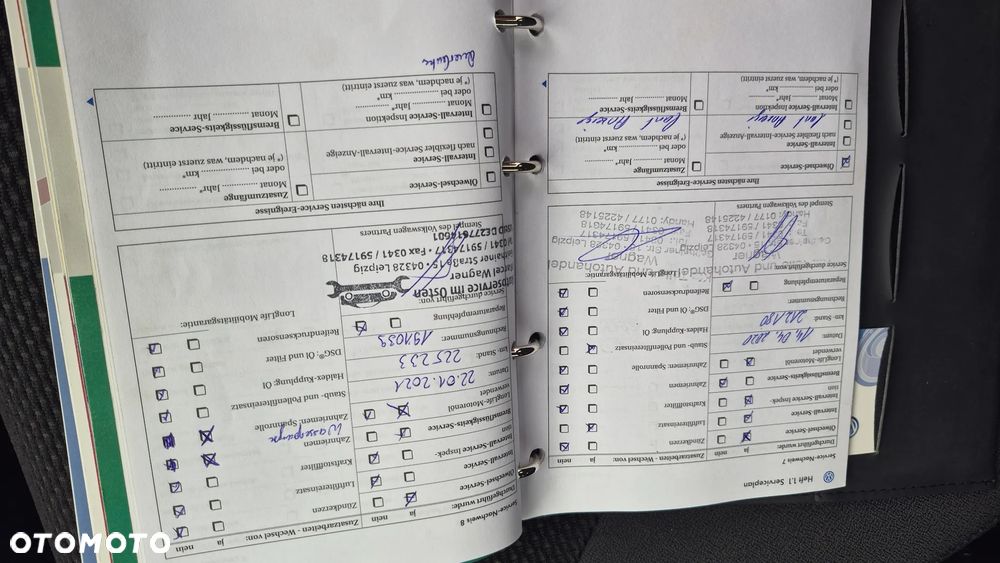 Heft 1.1 Serviceplan
Service-Nachweis 7
Durchgeführt wurde:
ja
nein
Ölwechsel-Service
Intervall-Service
Intervall-Service Inspek-
tion
Bremsflüssigkeits-Service
LongLife-Motorenöl
verwendet
Datum:
14.04.2020
km-Stand:
212180
Rechnungsnummer:
Reparaturempfehlung
Service durchgeführt von:
Stempel des Volkswagen Partners
Zusatzarbeiten - Wechsel von:
ja
nein
Zündkerzen
Luftfiltereinsatz
Kraftstofffilter
Zahnriemen
Zahnriemen, Spannrolle
Staub- und Pollenfiltereinsatz
Haldex-Kupplung Öl
DSG®, Öl und Filter
Reifendrucksensoren
LongLife Mobilitätsgarantie:
und Autohandel
Wagner
04328 Leipzig
0341/59174317
Handy: 0177 / 4225148
Ihre nächsten Service-Ereignisse
Ölwechsel-Service
Intervall-Service
nach flexibler Service-Intervall-Anzeige
Intervall-Service Inspektion
Monat Jahr*
oder bei km*
(*je nachdem, was zuerst eintritt)
Zusatzumfänge
Monat Jahr*
oder bei km*
(*je nachdem, was zuerst eintritt)
Bremsflüssigkeits-Service
Monat Jahr
Service-Nachweis 8
Durchgeführt wurde:
ja
nein
Ölwechsel-Service
Intervall-Service
Intervall-Service Inspek-
tion
Bremsflüssigkeits-Service
LongLife-Motorenöl
verwendet
Datum:
22.01.2021
km-Stand:
225233
Rechnungsnummer:
191039
Reparaturempfehlung
Service durchgeführt von:
Autoservice im Osten
Wagner
04328 Leipzig
0341 / 59174317 • Fax 0341 / 59174318
Stempel des Volkswagen Partners
Zusatzarbeiten - Wechsel von:
ja
nein
Zündkerzen
Luftfiltereinsatz
Kraftstofffilter
Zahnriemen
Wasserpumpe
Zahnriemen, Spannrolle
Staub- und Pollenfiltereinsatz
Haldex-Kupplung Öl
DSG®, Öl und Filter
Reifendrucksensoren
LongLife Mobilitätsgarantie:
Ihre nächsten Service-Ereignisse
Ölwechsel-Service
Intervall-Service
nach flexibler Service-Intervall-Anzeige
Intervall-Service Inspektion
Monat Jahr*
oder bei km*
(*je nachdem, was zuerst eintritt)
Zusatzumfänge
Monat Jahr*
oder bei km*
(*je nachdem, was zuerst eintritt)
Bremsflüssigkeits-Service
Monat Jahr
OTOMOTO